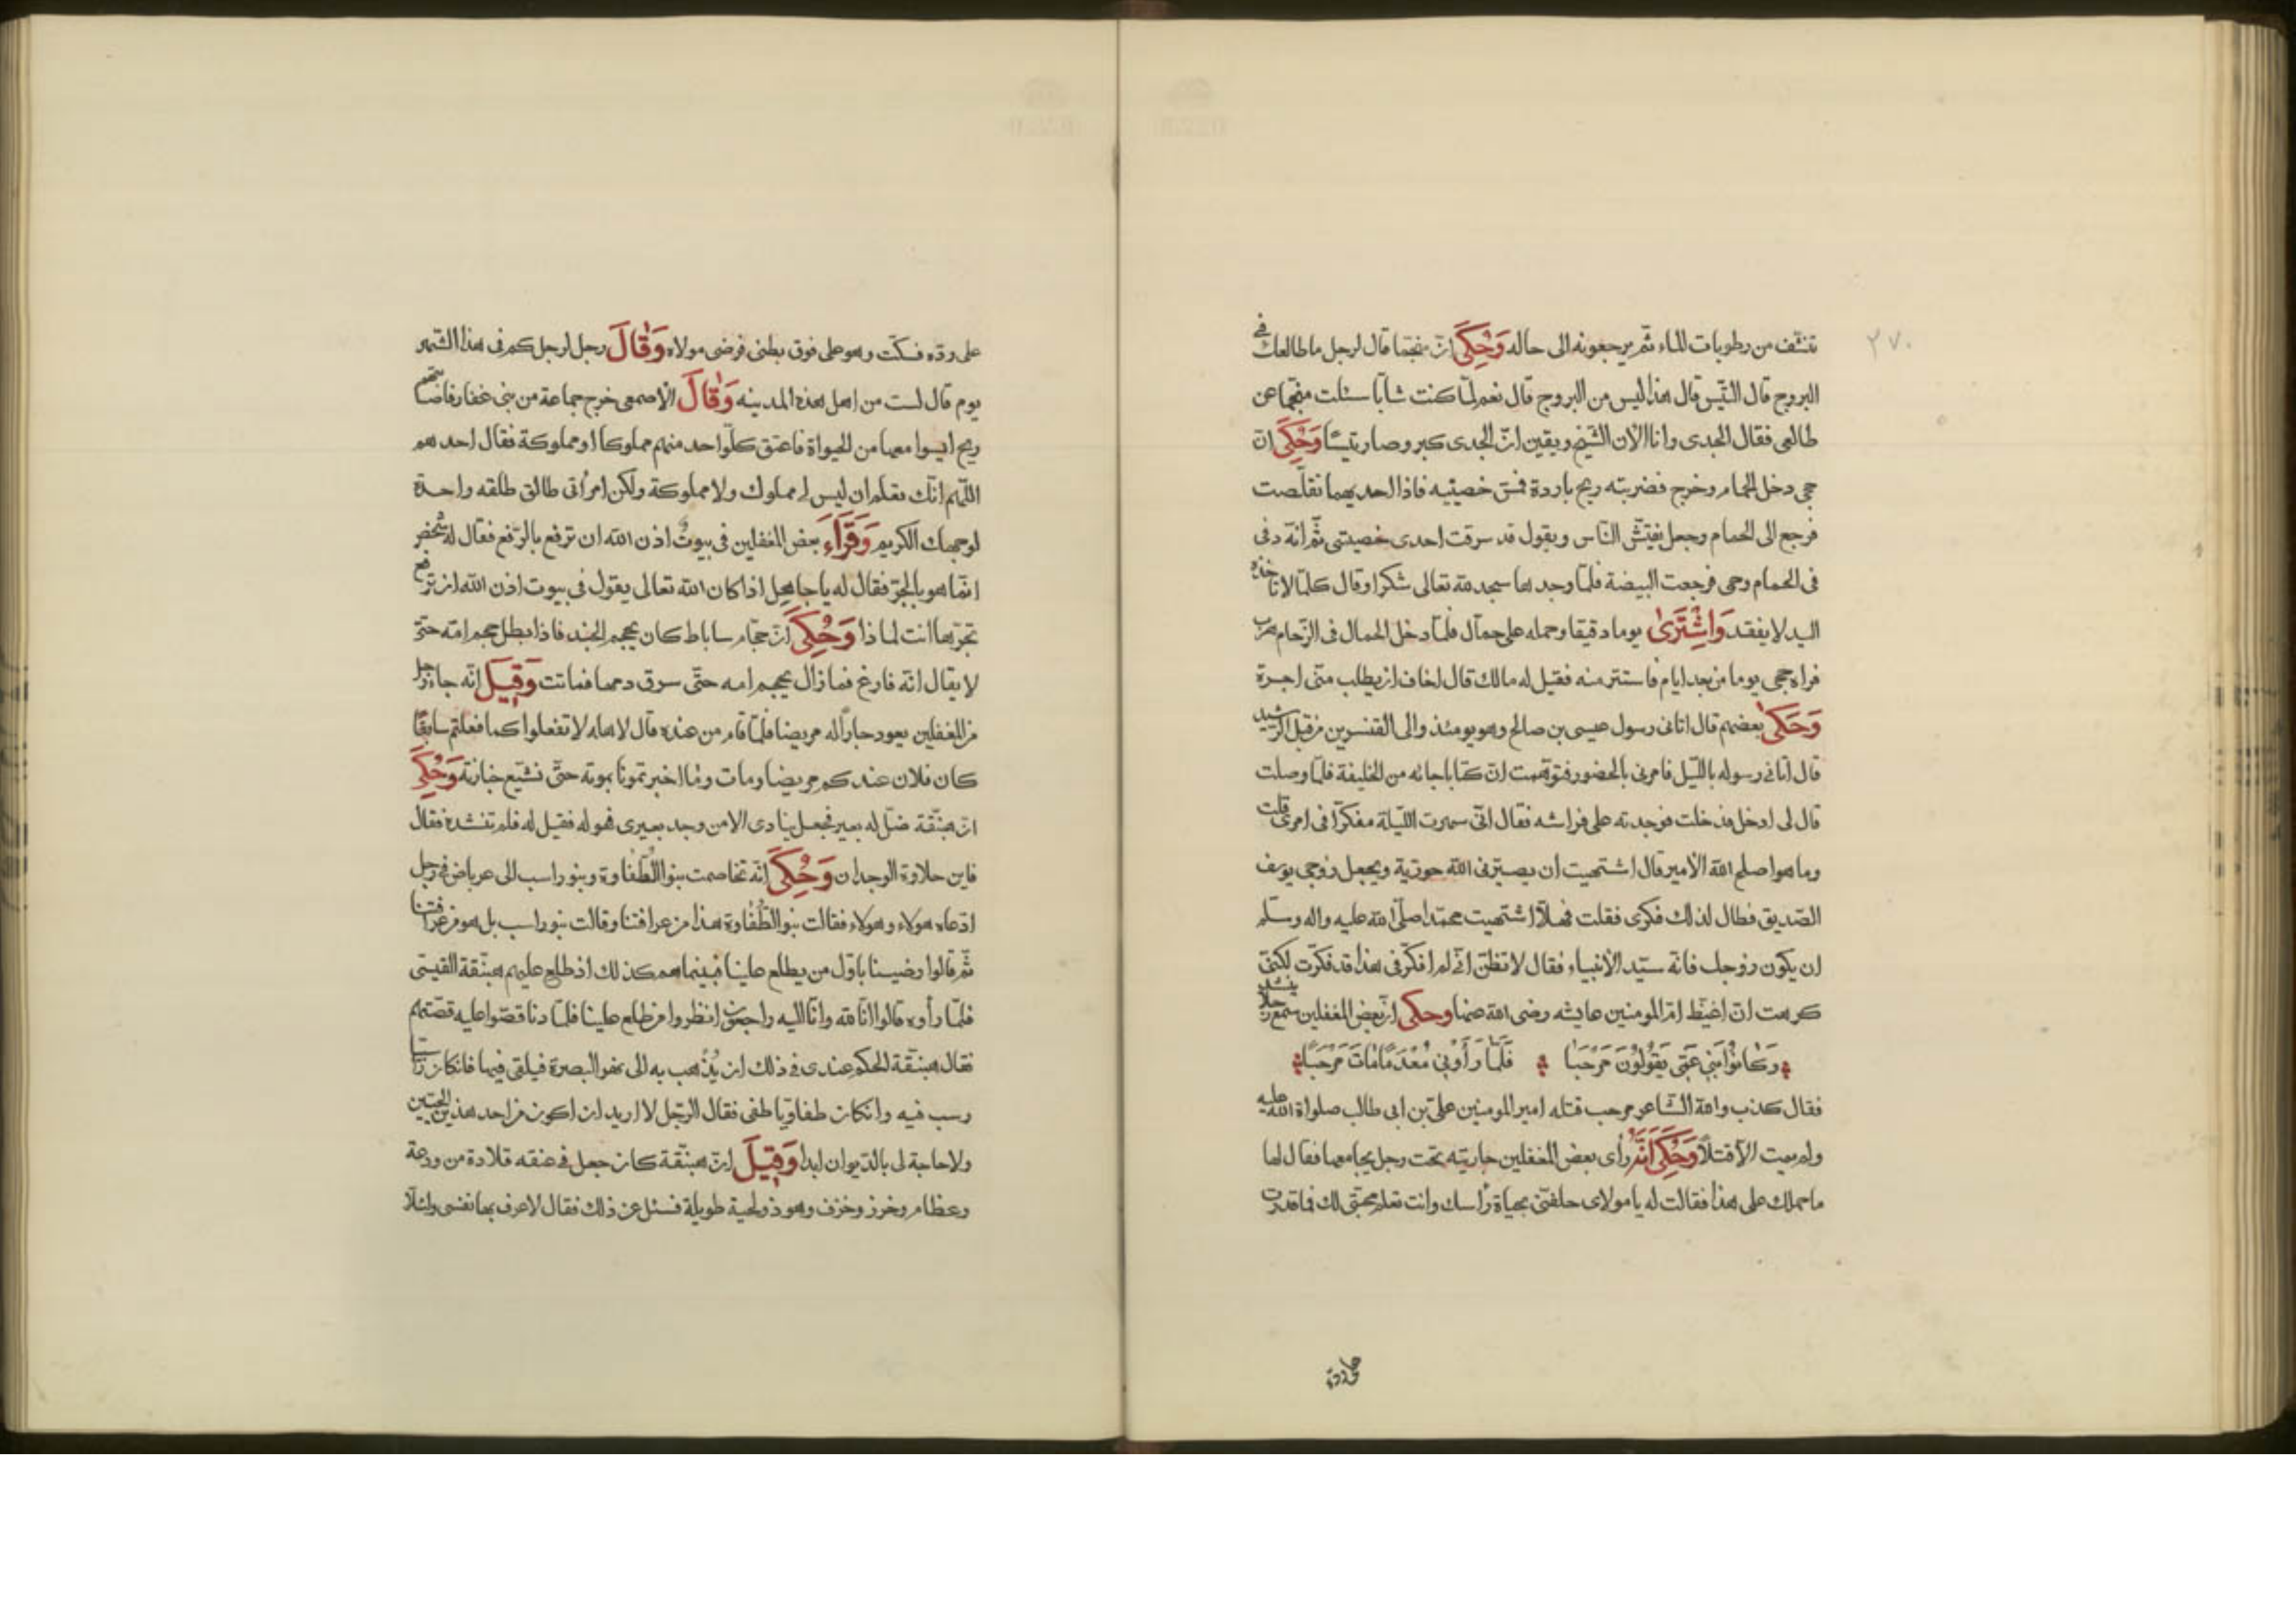 ٢٧٠
تنشف من رطوبات الماء ثم يرجعونه الى حاله وَحُكِىَ انّ منجّما قال لرجل ما طالعك في
البروج قال التّيس قال هذا ليس من البروج قال نعم لمّا كنت شابّا سئلت منجّما عن
طالعى فقال الجدى وانا الآن الشّيخ ويقين انّ الجدى كبر وصار تيسًا وَحُكِىَ انّ
جحى دخل الحمام وخرج فضربته ريح باردة فمسّ خصيتيه فاذا احديهما تقلّصت
فرجع الى الحمام وجعل يفتّش النّاس ويقول قد سرقت احدى خصيتى ثمّ انّه دفى
فى الحمام وحمى فرجعت البيضة فلمّا وجدها سجد لله تعالى شكرا وقال كلّما لا تاخذه
اليد لا يفقد وَاشْتَرىٰ يوما دقيقا وحمله على حمّال فلمّا دخل الحمال فى الزّحام هرب
فراه جحى يوما من بعد ايام فاستتر منه فقيل له مالك قال اخاف ان يطلب منّى اجرة
وَحَكىٰ بعضهم قال اتانى رسول عيسى بن صالح وهو يومئذ والى القنسرين من قبل الرشيد
قال اتانى رسوله باللّيل فامرنى بالحضور فتوهّمت انّ كتابا جائه من الخليفة فلمّا وصلت
قال لى ادخل فدخلت فوجدته على فراشه فقال انّى سهرت اللّيلة مفكرّا فى امرى قلت
وما هو اصلح الله الأمير قال اشتهيت أن يصيّرنى الله حوريّة ويجعل زوجى يوسف
الصّديق فطال لذلك فكرى فقلت فهلّا اشتهيت محمّدا صلّى الله عليه واله وسلّم
ان يكون زوجك فانّه سيّد الأنبياء فقال لا تظنّ انّى لم افكّر فى هذا قد فكرّت لكنّى
كرهت انّ اغيّظ امّ المومنين عايشه رضى الله عنها وحكى انّ بعض المغفلين سمع رجلا ينشد
وَكانُوا بَنِى عَمّى يَقُولُونَ مَرْحَبا فَلَمّا رَأَوْنِى مُعْدَمًا مَاتَ مَرْحَبًا
فقال كذب والله الشّاعر مرحب قتله امير المومنين علىّ بن ابى طالب صلواة الله عليه
ولم يميت الأ قتلًا وَحُكِىَ أَنّهُ رأى بعض المغفلين جاريته تحت رجل يجامعها فقال لها
ما حملك على هذا فقالت له يا مولاى حلفتنى بحياة رأسك وانت تعلم محبّتى لك فما قدرت
على ردّه فسكّت وهو على فوق بطنى فرضى مولاه وَقالَ رجل لرجل كم فى هذا الشّهر
يوم قال لست من اهل هذه المدينه وَقالَ الأصمعى خرج جماعة من بنى غفار فاصابتهم
ريح ايسوا معها من الحيواة فاعتق كلّ واحد منهم مملوكا او مملوكة فقال احدهم
اللّهم انّك تعلم ان ليس لى مملوك ولا مملوكة ولكن امرأتى طالق طلقه واحدة
لوجهك الكريم وَقَرَاَءَ بعض المغفلين فى بيوتٌ اذن الله ان ترفع بالرّفع فقال له شخص
انّما هو بالجرّ فقال له يا جاهل اذا كان الله تعالى يقول فى بيوت اذن الله ان ترفع
تجرّها انت لماذا وَحُكِىَ انّ حجّام ساباط كان يحجم الجند فاذا بطل حجم امّه حتّى
لا يقال انّه فارغ فما زال يحجم امه حتّى سرق دمها فماتت وَقِيلَ انّه جاء رجل
من المغفلين يعود جاراً له مريضا فلمّا قام من عنده قال لاهله لا تفعلوا كما فعلتم سابقًا
كان فلان عندكم مريضا ومات وما اخبرتمونا بموته حتّى نشيّع جنازته وَحُكِىَ
انّ هبنّقة ضلّ له بعير فجعل ينادى الا من وجد بعيرى فهو له فقيل له فلم تنشده فقال
فاين حلاوة الوجدان وَحُكِىَ انّه تخاصمت بنو الطّفاوة وبنو راسب الى عرباض فى رجل
ادّعاه هولاء وهولاء فقالت بنو الطّفاوة هذا من عرافتنا وقالت بنو راسب بل هو من عرافتنا
ثمّ قالوا رضينا باوّل من يطلع علينا فبينما هم كذلك اذ طلع عليهم هبنّقة القيسى
فلمّا رأوه قالوا انّا لله وانّا اليه راجعون انظروا من طلع علينا فلمّا دنا قصّوا عليه قصّتهم
فقال هبنّقة الحكم عندى فى ذلك ان يُذهب به الى نهر البصرة فيلقى فيها فانكان راسبيّا
رسب فيه وانكان طفاويّا طفى فقال الرّجل لا اريد ان اكون من احد هذين الحيّين
ولا حاجة لى بالدّيوان ابدا وَقِيلَ انّ هبنّقة كان جعل فى عنقه قلادة من ودعة
وعظام وخرز وخزف وهو ذو لحية طويلة فسئل عن ذلك فقال لاعرف بها نفسى ولئلّا